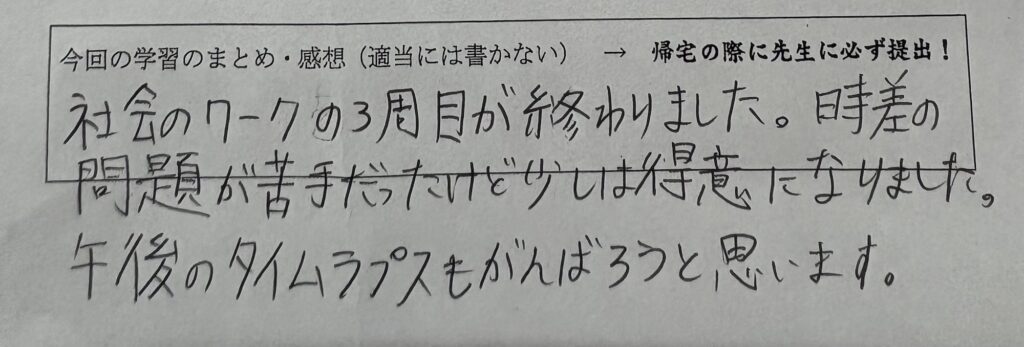 今回の学習のまとめ・感想（適当には書かない）　→　帰宅の際に先生に必ず提出！
社会のワークの3周目が終わりました。時差の
問題が苦手だったけど少しは得意になりました。
午後のタイムラプスもがんばろうと思います。